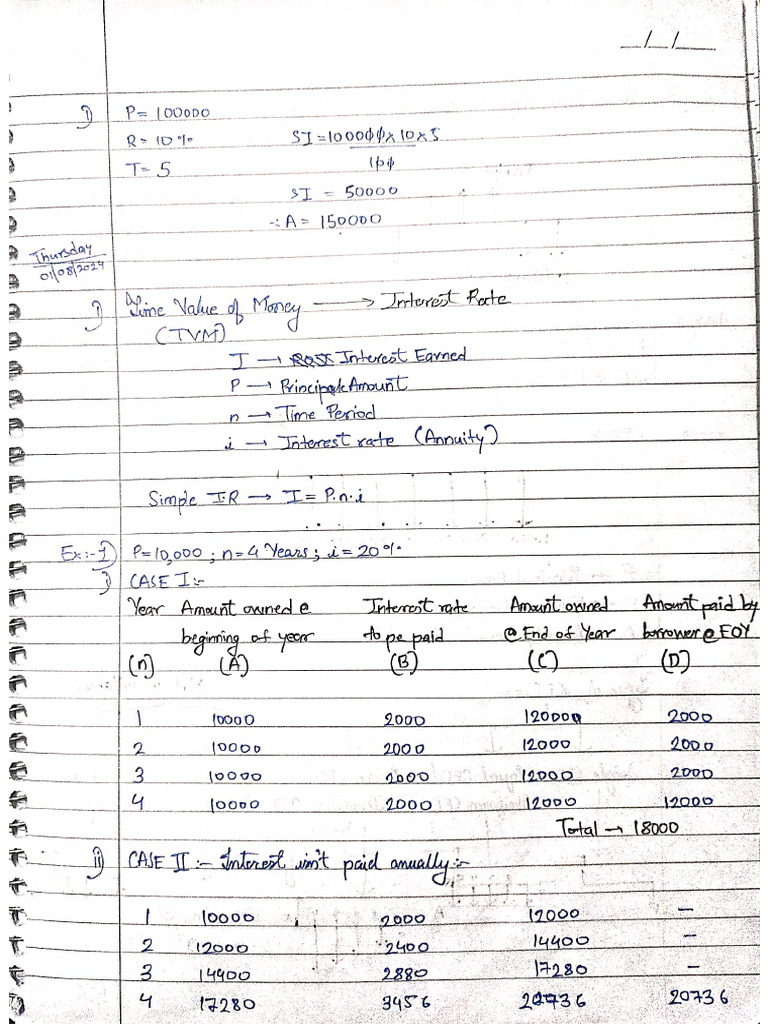 _/_/_
1) P= 100000
R= 10% SI=100000x10x5
T= 5 100
SI = 50000
∴A= 150000
Thursday
01/08/2024
1) Time Value of Money → Interest Rate
(TVM)
I → Interest Earned
P → Principal Amount
n → Time Period
i → Interest rate (Annuity)
Simple I.R → I= P.n.i
Ex:-1) P=10,000; n=4 Years; i=20%
i) CASE I:-
Year Amount owned @ Interest rate Amount owned Amount paid by
beginning of year to pe paid @ End of Year borrower @ EOY
(n) (A) (B) (C) (D)
1 10000 2000 120000 2000
2 10000 2000 12000 2000
3 10000 2000 12000 2000
4 10000 2000 12000 12000
Total → 18000
ii) CASE II:- Interest isn't paid anually:-
1 10000 2000 12000 -
2 12000 2400 14400 -
3 14400 2880 17280 -
4 17280 3456 20736 20736